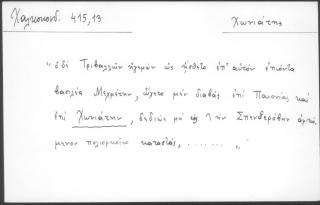 Χαλκοκονδ. 415,13
Χωνιάτης
"ὁ δὲ Τριβαλλῶν ἡγεμὼν ὡς ᾔσθετο ἐπ' αὐτὸν ἐπιόντα
βασιλέα Μεχμέτην, ᾤχετο μὲν διαβὰς ἐπὶ Παιονίας καὶ
ἐπὶ Χωνιάτην, δεδιὼς μὴ ἐς τὴν Σπενδερόβην
μενον πολιορκοῖτο καταστάς, ....... "